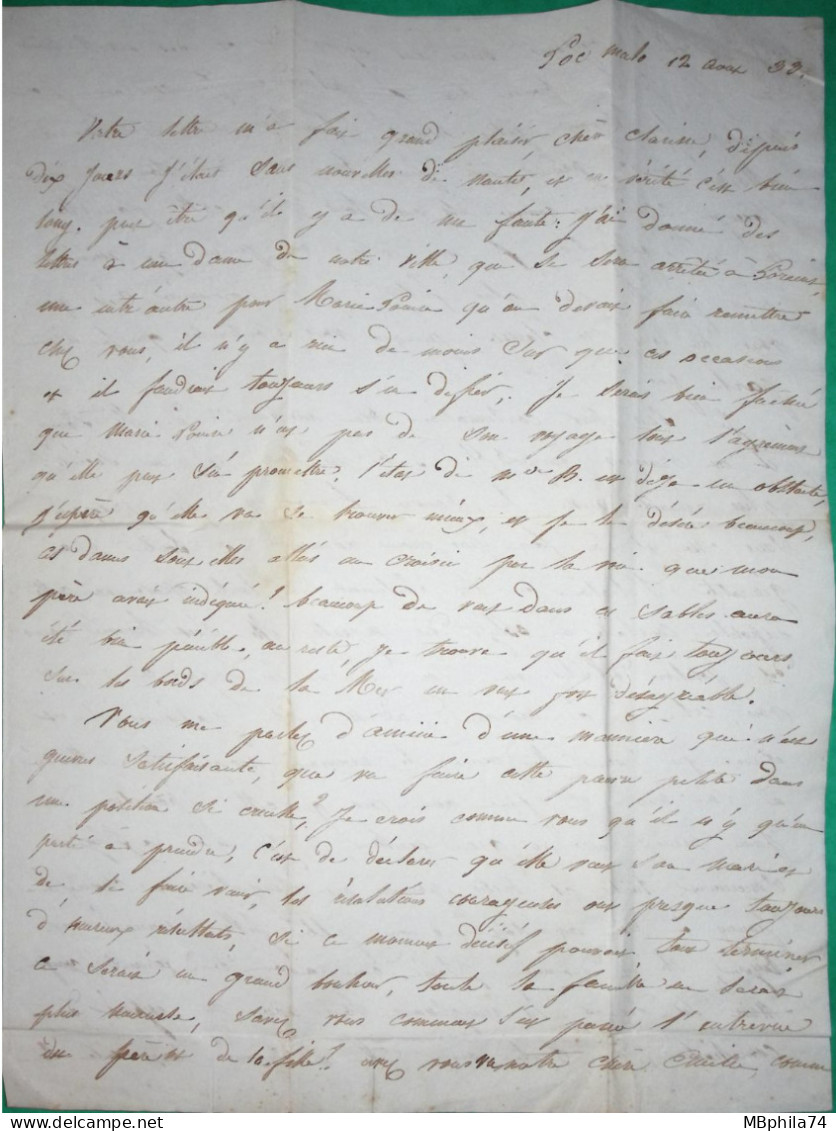 malo 12 aout 33.
Votre lettre m'a fait grand plaisir chère clarisse, depuis
dix jours j'étais sans nouvelles de nantes, et en vérité c'est bien
long. peut être qu'il y a de ma faute; j'ai donné des
lettres à une dame de notre ville, qui se sera arrêtée à
une entr'autre pour Marie qu'on devait faire remettre
chez vous, il n'y a rien de moins sur que ces occasions
et il faudrait toujours s'en défier. Je serais bien fachée
que Marie n'eut pas de son voyage tout l'agrément
qu'elle peut s'en promettre. l'état de me B. est déjà un obstacle,
j'espère qu'elle va se trouver mieux, et je le désire beaucoup,
ces dames sont elles allées au croisic par la voie que mon
père avait indiquée? beaucoup de vent dans ces sables aura
été bien pénible, au reste, je trouve qu'il fait toujours
sur les bords de la Mer un vent fort désagréable.
Vous me parlez d'une manière qui n'est
guères satisfaisante, que va faire cette pauvre petite dans
une position si cruelle? Je crois comme vous qu'il n'y qu'un
parti à prendre, c'est de déclarer qu'elle veut son mari et
de le faire voir, les résolutions courageuses ont presque toujours
d'heureux résultats, si ce moment décisif pouvait tout terminer
ce serait un grand bonheur, toute la famille en serait
plus heureuse, savez vous comment s'est passé l'entrevue
du père et de la fille? avez vous vu notre chère comme
MBphila74